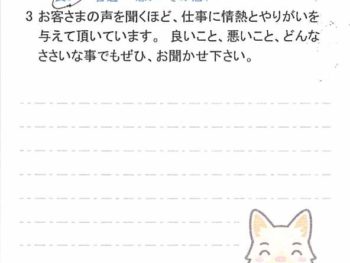 3 お客さまの声を聞くほど、仕事に情熱とやりがいを
与えて頂いています。 良いこと、悪いこと、どんな
ささいな事でもぜひ、お聞かせ下さい。